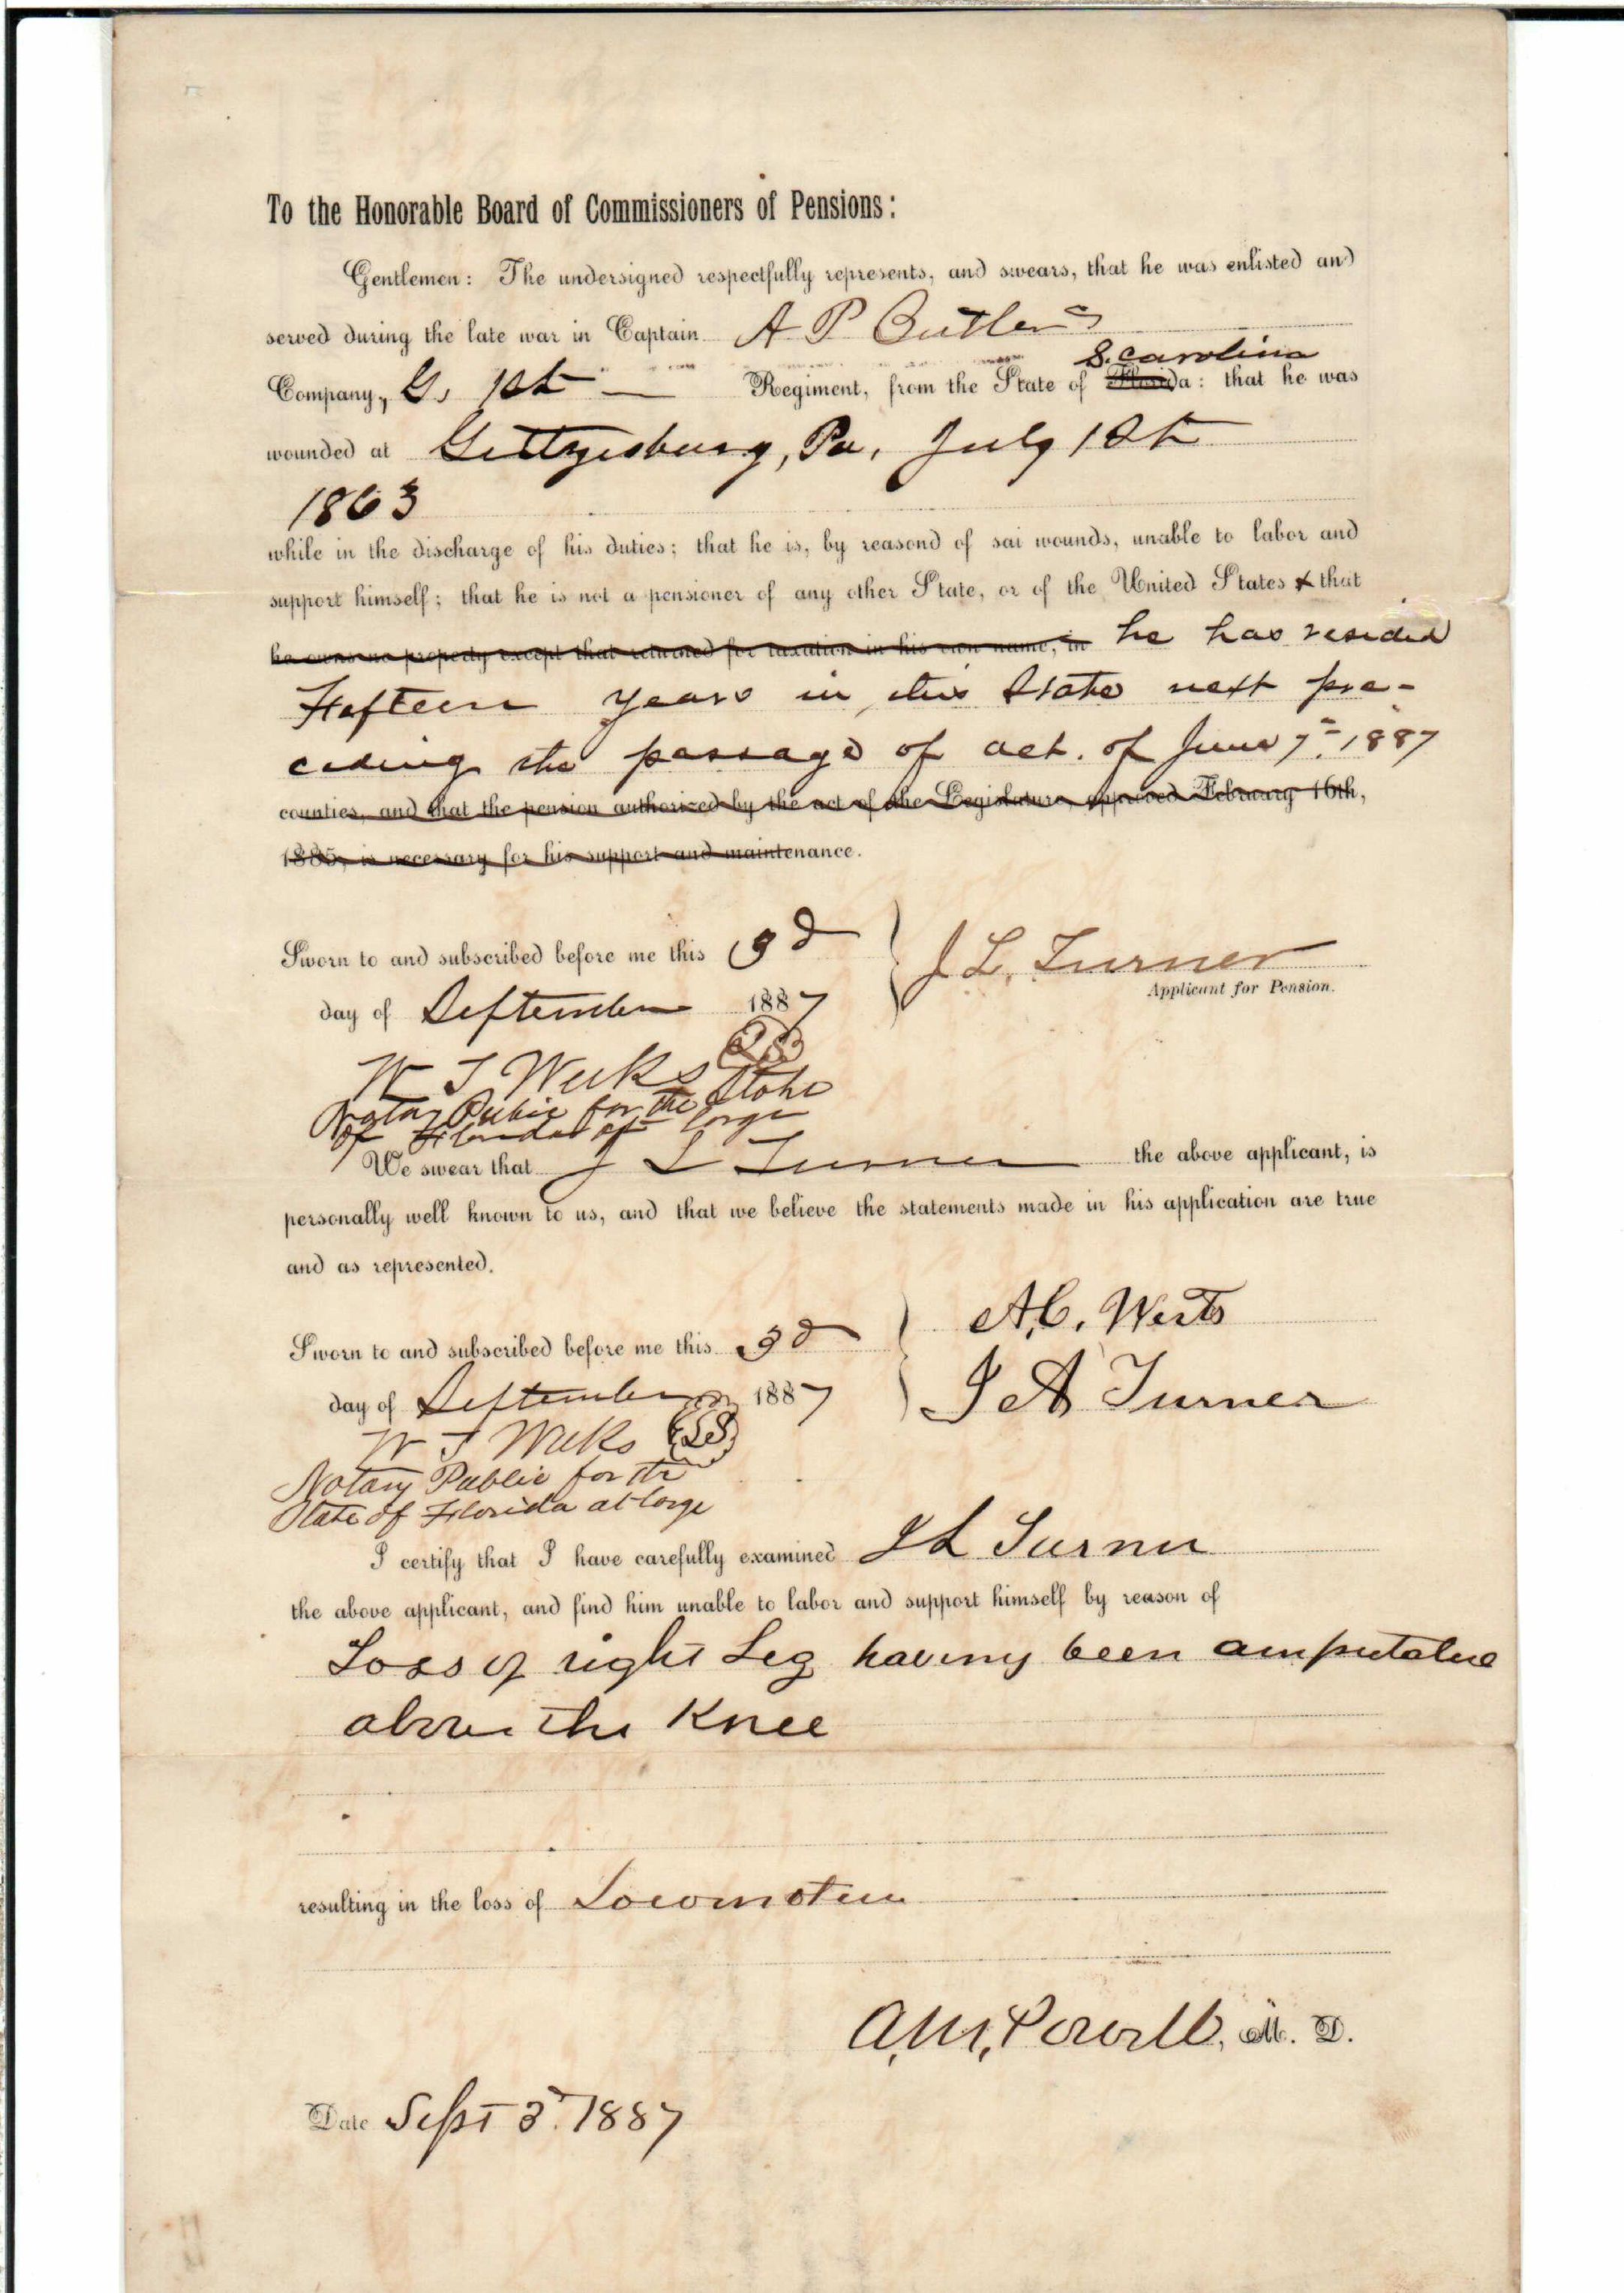 To the Honorable Board of Commissioners of Pensions:
Gentlemen: The undersigned respectfully represents, and swears, that he was enlisted and
served during the late war in Captain A P Butlers
S. Carolina
Company, G, 1st — Regiment, from the State of Florida: that he was
wounded at Gettysburg, Pa, July 1st
1863
while in the discharge of his duties; that he is, by reasond of sai wounds, unable to labor and
support himself; that he is not a pensioner of any other State, or of the United States & that
he owns no property except that returned for taxation in his own name, in he has resided
Fifteen years in this State next pre-
ceding the passage of act. of June 7th 1887
counties, and that the pension authorized by the act of the Legislature, approved February 16th,
1885, is necessary for his support and maintenance.
Sworn to and subscribed before me this 3d
J L. Turner
Applicant for Pension.
day of September 1887
W J Weeks
Notary Public for the State
of Florida at large
We swear that J L Turner the above applicant, is
personally well known to us, and that we believe the statements made in his application are true
and as represented.
A,C, Werts
Sworn to and subscribed before me this 3d
J A Turner
day of September 1887
W J Weeks
Notary Public for the
State of Florida at large
I certify that I have carefully examined J L Turner
the above applicant, and find him unable to labor and support himself by reason of
Loss of right Leg having been amputated
above the Knee
resulting in the loss of Locomotion
A,M, Powell, M. D.
Date Sept 3d 1887